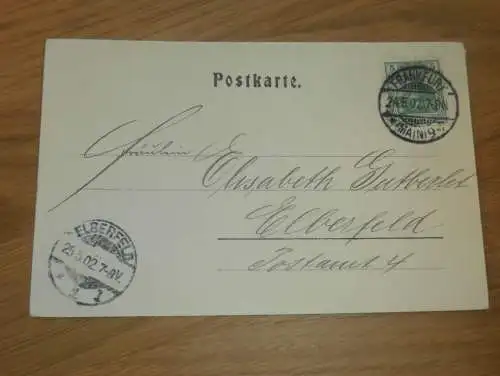 Postkarte.
FRANKFURT
24.5.02.7-8N.
* (MAIN) 9.
Fräulein
Elisabeth Gutberlet
Elberfeld
Postamt 4
ELBERFELD
25.5.02.7-8V.
* 1 z